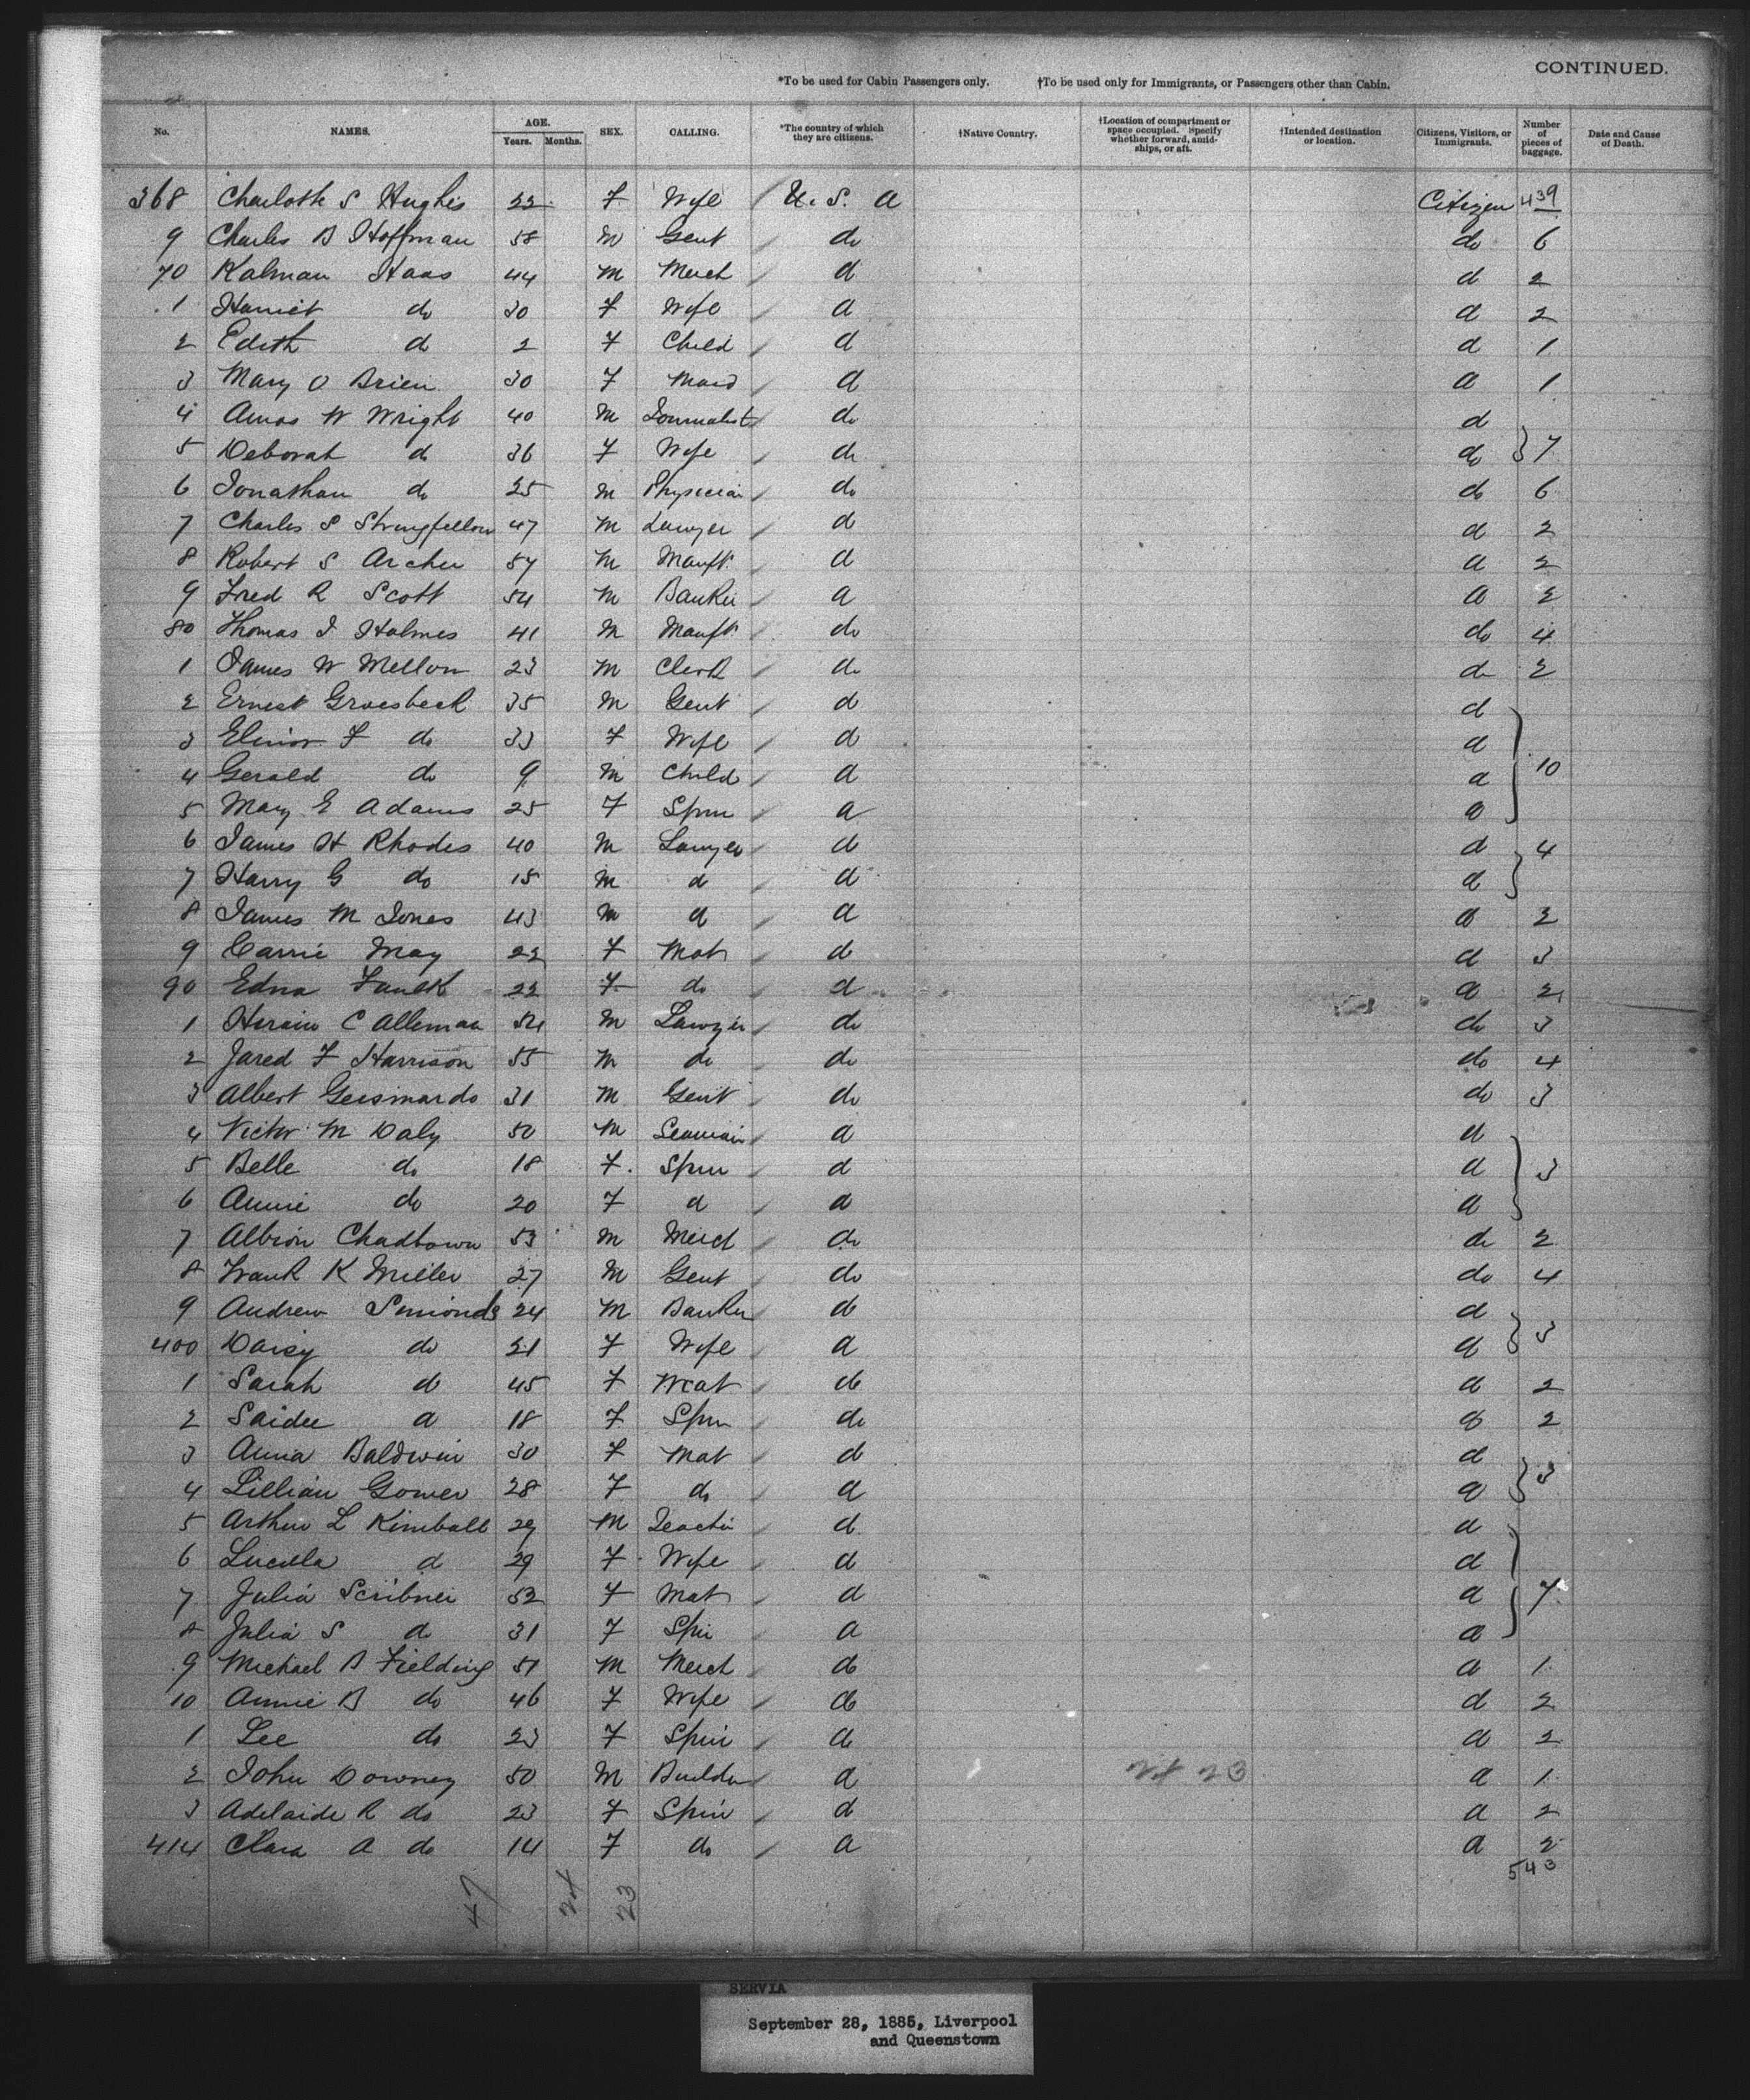 CONTINUED.
*To be used for Cabin Passengers only. †To be used only for Immigrants, or Passengers other than Cabin.
No. NAMES. AGE. Years. Months. SEX. CALLING. *The country of which they are citizens. †Native Country. †Location of compartment or space occupied. Specify whether forward, amidships, or aft. †Intended destination or location. Citizens, Visitors, or Immigrants. Number of pieces of baggage. Date and Cause of Death.
368 Charlotte S Hughes 22 F Wife U. S. A Citizen 439
9 Charles B Hoffman 58 M Gent do do 6
70 Kalman Haas 44 M Merch d d 2
1 Harriet do 30 F Wife d d 2
2 Edith d 2 F Child d d 1
3 Mary O Brien 30 F Maid d d 1
4 Amos W Wright 40 M Journalist do d
5 Deborah do 36 F Wife do do } 7
6 Jonathan do 25 M Physician do do 6
7 Charles S Stringfellow 47 M Lawyer d d 2
8 Robert S Archer 57 M Manft d d 2
9 Fred R Scott 54 M Banker d d 2
80 Thomas J Holmes 41 M Manft do do 4
1 James W Mellon 23 M Clerk do do 2
2 Ernest Groesbeck 35 M Gent d d
3 Elinor F do 33 F Wife d d
4 Gerald do 9 M Child d d } 10
5 Mary E Adams 25 F Spin d d
6 James H Rhodes 40 M Lawyer d d } 4
7 Harry G do 15 M d d d
8 James M Jones 43 M d d d 2
9 Carrie May 22 F Mat d d 3
90 Edna Faulk 22 F do d d 2
1 C Alleman 54 M Lawyer do do 3
2 Jared F Harrison 55 M do do do 4
3 Albert 31 M Gent do do 3
4 Victor M Daly 50 M Seaman d d
5 Belle do 18 F Spin d d } 3
6 Annie do 20 F d d d
7 Albion 53 M Merch do do 2
8 Frank K Miller 27 M Gent do do 4
9 Andrew Simonds 24 M Banker do d
400 Daisy do 21 F Wife d d } 3
1 Sarah d 45 F Mat do d 2
2 Saidee d 18 F Spin do d 2
3 Anna Baldwin 30 F Mat d d
4 Lillian Gower 28 F do d d } 3
5 Arthur L Kimball 29 M Teacher d d
6 Lucilla d 29 F Wife d d
7 Julia Scribner 52 F Mat d d } 7
8 Julia S do 31 F Spin d d
9 Michael B Fielding 51 M Merch do d 1
10 Annie B do 46 F Wife do d 2
1 Lee do 23 F Spin d d 2
2 John Downey 50 M Builder d d 1
3 Adelaide R do 23 F Spin d d 2
414 Clara A do 14 F do d d 2
543
47 24 23
24 23
SERVIA
September 28, 1885, Liverpool
and Queenstown